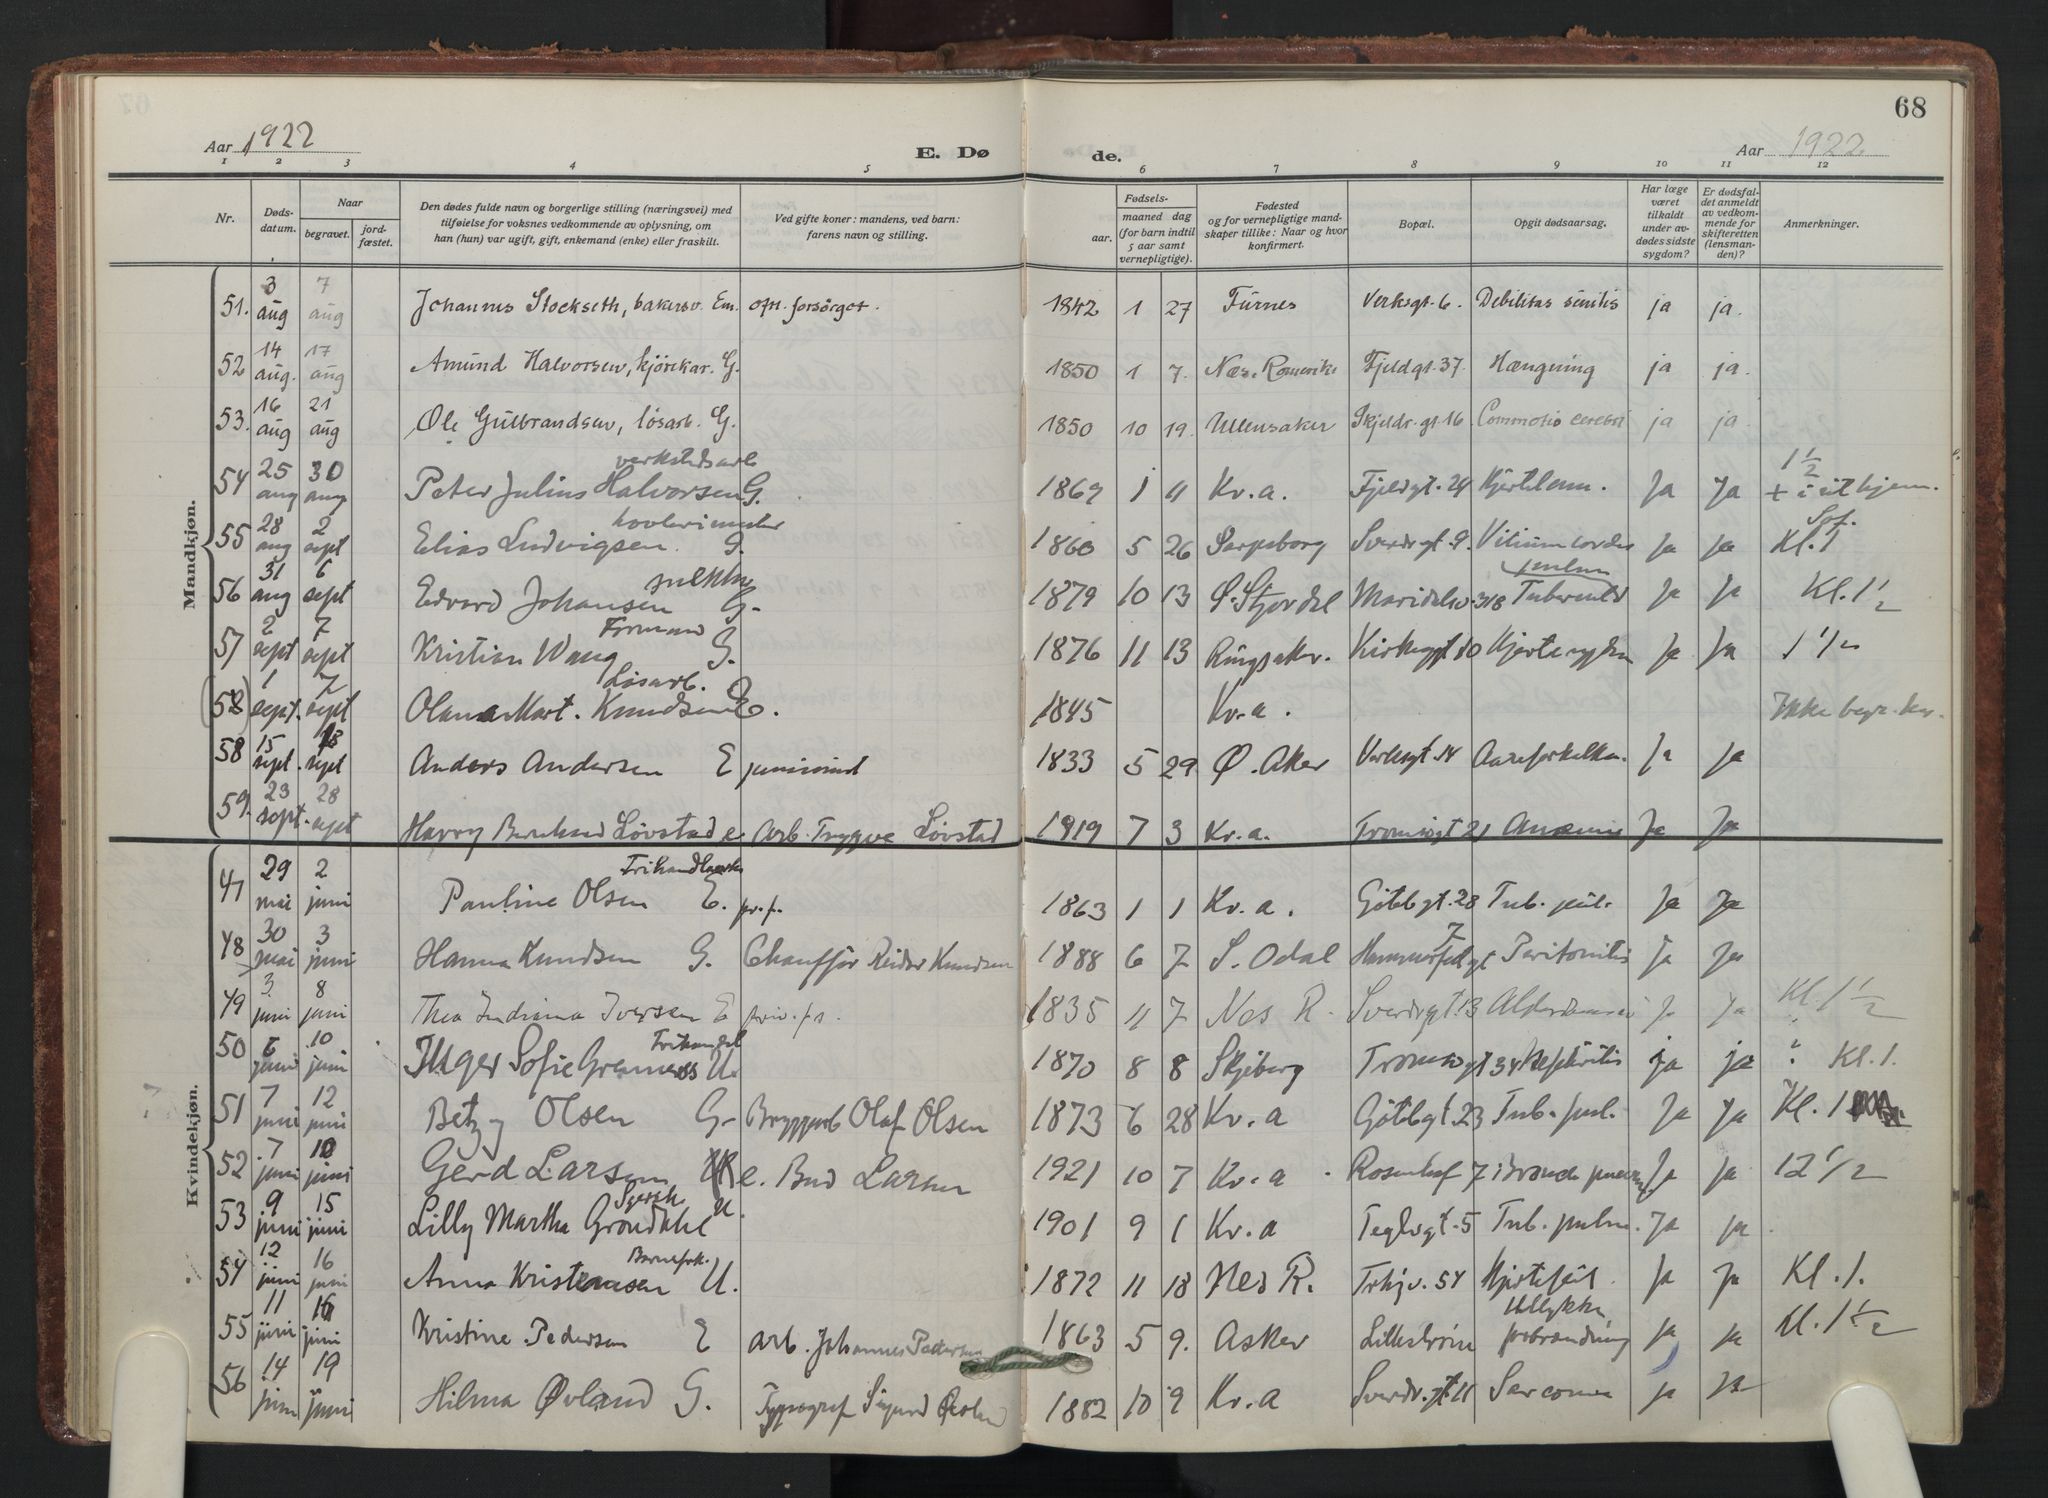 68
Aar 1922
E. Dø
de.
Aar 1922
1 2 3 4 5 6 7 8 9 10 11 12
Nr.
Døds-
datum.
Naar
begravet.
jord-
fæstet.
Den dødes fulde navn og borgerlige stilling (næringsvei) med
tilføielse for voksnes vedkommende av oplysning, om
han (hun) var ugift, gift, enkemand (enke) eller fraskilt.
Ved gifte koner: mandens, ved barn:
farens navn og stilling.
Fødsels-
aar.
maaned dag
(for barn indtil
5 aar samt
vernepligtige).
Fødested
og for vernepligtige mand-
skaper tillike: Naar og hvor
konfirmert.
Bopæl.
Opgit dødsaarsag.
Har læge
været
tilkaldt
under av-
dødes sidste
sygdom?
Er dødsfal-
det anmeldt
av vedkom-
mende for
skifteretten
(lensman-
den)?
Anmerkninger.
Mandkjøn.
51. 3 aug 7 aug Johannes Stockseth, bakersv. Em. off. forsørget. 1842 1 27 Furnes Verksgt. 6. Debilitas senilis ja ja.
52 14 aug. 17 aug Amund Halvorsen, kjørekar. G. 1850 1 7. Næs. Romerike Fjeldgt. 37. Hængning ja ja.
53. 16 aug 21 aug Ole Gulbrandsen, løsarb. G. 1850 10 19. Ullensaker Skjeldr. gt. 16 Commotio cerebri ja ja.
54 25 aug 30 aug Peter Julius Halvorsen verkstedsarb G. 1869 1 11 Kr.a. Fjeldgt. 24 Ja Ja 1 1/2
55 28 aug 2 sept Elias Ludvigsen. G. 1860 5 26 Sarpsborg Sverdr.gt. 9. Vitium cordis Ja Ja Kl. 1
56 31 aug 6 sept Edvard Johansen G. 1879 10 13 Ø. Stjørdal Maridalsv. 318 Tuberculos Ja Ja Kl. 1 1/2
57 2 sept 7 sept Kristian Wang Formand G. 1876 11 13 Ringsaker. Kirkegt 10 Hjertesygdom Ja Ja 1 1/2
(58) 1 sept. 7 sept Olana Mart. Knudsen Løsarb. E. 1845 Kr.a. Ikke begr. her.
58 15 sept. 18 sept Anders Andersen E 1833 5 29 Ø. Aker Verksgt. 14 Aareforkalkn. Ja Ja
59. 23 sept. 28 sept Harry Bernhard Løvstad e. Arb. Trygve Løvstad 1919 7 3 Kr.a. Tromsøgt 21 Anæmie Ja Ja
Kvindekjøn.
47 29 mai 2 juni Pauline Olsen Frihandlerske E. pr. f. 1863 1 1 Kr.a. Gøtebgt. 28 Tub. pul. Ja Ja
48 30 mai 3 juni Hanna Knudsen G. Chauffør Reidar Knudsen 1888 6 7 S. Odal Hammerfestgt 7 Peritonitis Ja Ja
49 3 juni 8 juni Thea Indiana Iversen E priv. fs. 1835 11 7 Nes R. Sverdrgt. 13 Ja Ja Kl. 1 1/2
50 6 juni 10 juni Inger Sofie Greunerss Frihandel U. 1870 8 8 Skjeberg Tromsøgt 34 Nephritis ja ja Kl. 1.
51 7 juni 12 juni Betzy Olsen G. Bryggarb Olaf Olsen 1873 6 28 Kr.a Gøtebgt. 23 Tub. pul. Ja Ja Kl. 1
52 7 juni 10 juni Gerd Larsen e. Bud Larsen 1921 10 7 Kr.a Rosenhof 7 Ja Ja 12 1/2
53 9 juni 15 juni Lilly Martha Grøndahl Syersk U. 1901 9 1 Kr.a Teglvgt. 5 Tub. pulm. Ja ja.
54 12 juni 16 juni Anna Kristensen U. 1872 11 18 Nes R. Trhjv. 54 Hjertefeil. Ja Ja Kl. 1.
55 11 juni 16 juni Kristine Pedersen E arb. Johannes Pedersen 1863 5 9. Asker Lillestrøm Ulykke forbrænding ja ja Kl. 1 1/2
56 14 juni 19 juni Hilma Øvland G. Typograf Sigurd Øvland 1882 10 9 Kr.a Sverdr.gt. 11 Sarcoma ja ja